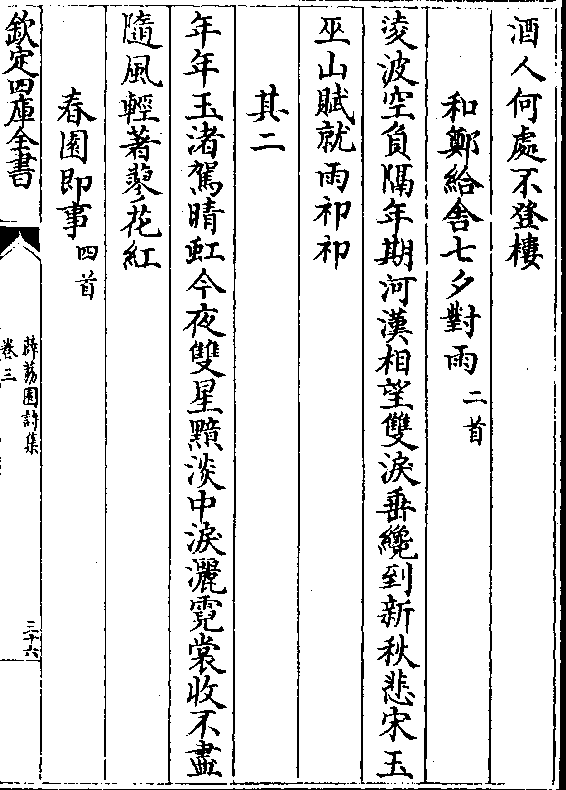 酒人何處不登樓
和鄭給舎七夕對雨二首
淩波空負隔年期河漢相望雙淚垂纔到新秋悲宋玉
巫山賦就雨祁祁
其二
年年玉渚駕晴虹今夜雙星黯淡中淚灑霓裳收不盡
隨風輕著蓼花紅
春園即事四首
欽定四庫全書
薜荔園詩集
卷三
三十六